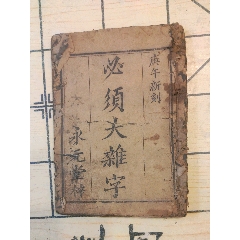 庚午新刻
必須大雜字
永元堂梓